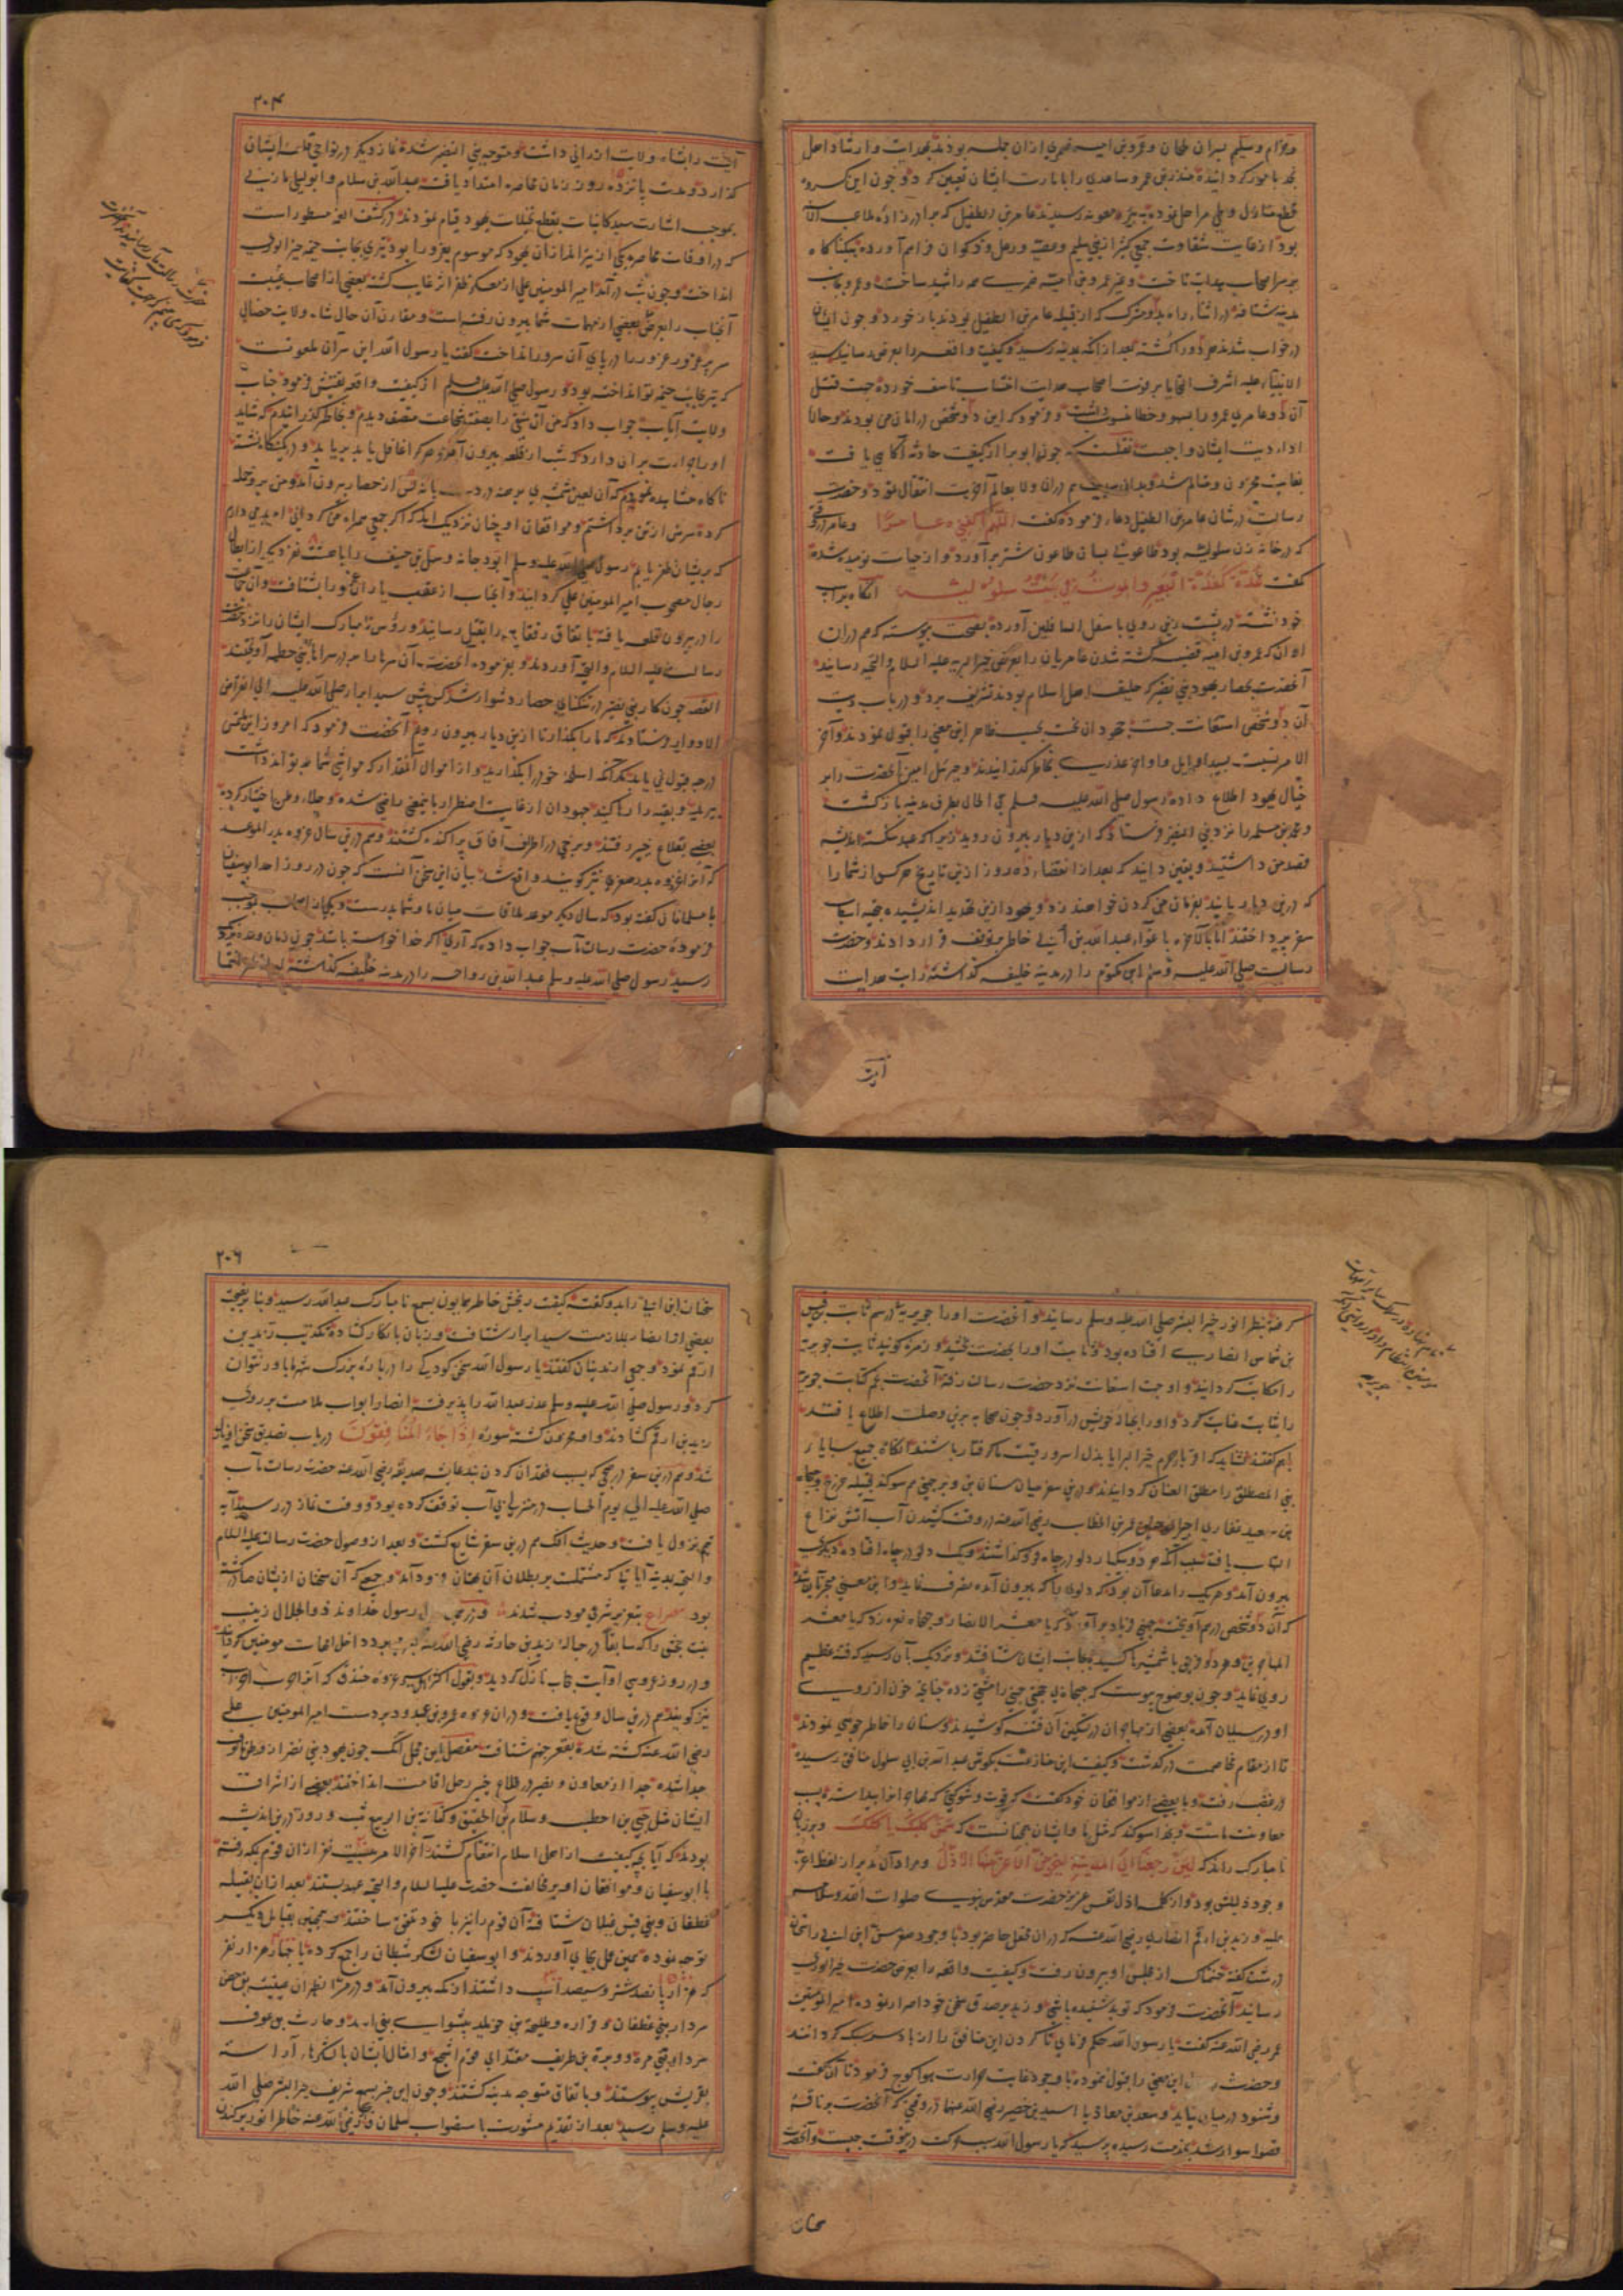 وحرام وسلیم بسران ملحان وعمرو بن امیه ضمری ازان جمله بودند بهدایت وارشاد اهل
نجد مامور کردانیده منذر بن عمرو ساعدی را بامارت ایشان تعیین کرد وچون این کروه
قطع منازل وطی مراحل نموده به بئر معونه رسیدند عامر بن الطفیل که برادرزاده
بود از غایت شقاوت جمعی کثیر از بنی سلیم وعصیه ورعل وذکوان فراهم آورده
بر سر اصحاب هدایت تاخت وغیر عمرو بن امیه همه را شهید ساخت وعمرو بجانب
مدینه شتافته در اثناء راه بدو مشرک که از قبیله عامر بن الطفیل بودند باز خورد وچون ایشان
در خواب شدند هر دو را کشته بعد از انکه بمدینه رسید وکیفیت واقعه را بعرض رسانید سید
الانبیاء علیه اشرف التحایا بر فوت اصحاب هدایت انتساب تاسف خورده جهت قتل
آن دو عامری عمرو را بسهو وخطا منسوب داشت وفرمود که این دو شخص در امان من بودند وحالا
اداء دیت ایشان واجبست نقلست که چون ابو برا از کیفیت حادثه آکاهی یافت
بغایت محزون ومتالم شد وبدان در ان ولا بعالم آخرت انتقال نمود وحضرت
رسالت در شان عامر بن الطفیل دعاء فرموده گفت اللهم اکفنی عامرا وعامر در وقتی
که در خانه زن سلولیه بود طاعونی بسان طاعون شتر برآورد واز حیات نومید شده
گفت غدة کغدة البعیر وموت فی بیت سلولیه انکاه بر اسب
خود نشسته در پشت زین روی باسفل السافلین آورد بصحت پیوسته که هم دران
اوان که عمرو بن امیه قضیه کشته شدن عامریان را بعرض خیر البریه علیه السلام والتحیه رسانید
آنحضرت بحصار یهود بنی نضیر که حلیف اهل اسلام بودند تشریف برد ودر باب دیت
آن دو شخص استعانت جست جهودان نخست بحسب ظاهر این معنی را قبول نمودند وآخر
الامر نسبت بسید اوایل واواخر عذری بخاطر گذرانیدند وجبرئیل امین آنحضرت را بر
خیال یهود اطلاع داده رسول صلی الله علیه وسلم فی الحال بطرف مدینه باز گشت
ومحمد بن مسلمه را نزد بنی النضیر فرستاد که ازین دیار بیرون روید زیرا که عهد شکسته اندیشه
قصد من داشتید ویقین دانید که بعد از انقضاء ده روز ازین تاریخ هر کس از شما را
که درین دیار یابند بفرمان من کردن خواهند زد ویهود ازین تهدید اندیشیده بتهیه اسباب
سفر پرداختند اما بالآخره باغواء عبد الله بن ابی خاطر بر توقف قرار دادند وحضرت
رسالت صلی الله علیه وسلم ابن مکتوم را در مدینه خلیفه گذاشته رایت هدایت
آیت
۲۰۴
آیت را بشاه ولایت ارزانی داشت ومتوجه بنی النضیر شده نماز دیگر در نواحی قلعه ایشان
گذارد ومدت پانزده روز زمان محاصره امتداد یافت عبدالله بن سلام وابو لیلی مازنی
بموجب اشارت سید کائنات بقطع نخیلات یهود قیام نمودند در کشف الغمه مسطور است
که در اوقات محاصره یکی از تیر اندازان یهود که موسوم بعزورا بود تیری بجانب خیمه خیر الوری
انداخت وچون شب درآمد امیر المومنین علی از معسکر ظفر اثر غایب گشته بعضی از اصحاب غیبت
آنجناب را بعرض بعضی از مهمات شما بیرون رفته است ومقارن آن حال شاه ولایت خصال
سر پر غرور عزورا را در پای آن سرور انداخت گفت یا رسول الله این سر آن ملعونست
که تیر بجانب خیمه تو انداخته بود ورسول صلی الله علیه وسلم از کیفیت واقعه تفتیش فرمود جناب
ولایت مآب جواب داد که من آن شقی را بصفت شجاعت متصف دیدم وبخاطر گذرانیدم که شاید
او را جرات بران دارد که شب از قلعه بیرون آمده هر که را غافل یابد برباید ودر کمینگاه نشسته
ناگاه مشاهده نمودم که آن لعین شمشیری برهنه در دست با نه کس از حصار بیرون آمد ومن برو حمله
کرده سرش از تن برداشتم وموافقان او چنان نزدیک اند که اگر جمعی همراه من گردانی امید می دارم
که بر ایشان ظفر یابم رسول صلی الله علیه وسلم ابو دجانه وسهل بن حنیف را با هشت نفر دیگر از ابطال
رجال مصحوب امیر المومنین علی گردانید وآنجناب از عقب یاران عزورا بشتافت وآن جماعت
را در بیرون قلعه یافته باتفاق رفقا همه را بقتل رسانید ورؤس نامبارک ایشان را نزد حضرت
رسالت علیه السلام والتحیه آوردند وبفرموده آنحضرت آن سرها را بر در سراهای بنی حطمه آویختند
القصه چون کار بنی نضیر در تنکنای حصار دشوار شد کس پیش سید ابرار صلی الله علیه الی انقراض
الادوار فرستادند که ما را بگذار تا ازین دیار بیرون رویم آنحضرت فرمود که امروز این ملتمس
درجه قبول نمی یابد مگر آنکه اسلحه خود را بگذارید واز اموال آنقدار که مواشی شما بتواند داشت
ببرید وبقیه را رها کنید جهودان از غایت اضطرار باینمعنی راضی شده وجلاء وطن اختیار کرده
بعضی بقلاع خیبر رفتند وبرخی در اطراف آفاق پراکنده گشتند وهم درین سال غزوه بدر الموعد
که آنرا غزوه بدر صغری نیز گویند واقع شد بیان این سخن آنست که چون در روز احد ابوسفیان
با مسلمانان گفته بود که سال دیگر موعد ملاقات میان ما وشما بدرست ویکی از اصحاب بموجب
فرموده حضرت رسالت مآب جواب داده که آری اگر خدا خواسته باشد چون زمان وعده نزدیک
رسید رسول صلی الله علیه وسلم عبد الله بن رواحه را در مدینه خلیفه گذاشته
کرفته بنظر انور خیر البشر صلی الله علیه وسلم رسانید وآنحضرت او را جویریه در سهم ثابت بن قیس
بن شماس انصاری افتاده بود وثابت او را بحضرت بخشید وزمره گویند ثابت جویریه
را مکاتب گردانید واو جهت استعانت نزد حضرت رسالت رفته آنحضرت نجم کتابت جویریه
را بثابت عنایت کرد واو را بعقد خویش درآورد وچون صحابه برین وصلت اطلاع یافتند
باهم گفتند نشاید که اقربای حرم خیر البرایا بذل اسر ورقیت ما گرفتار باشند انگاه جمیع سبایای
بنی المصطلق را مطلق العنان گردانیدند ودرین سفر میان سنان بن وبر جهنی هم سوگند قبیله خزرج وجهجاه
بن سعید غفاری اجیر عمر بن الخطاب رضی الله عنه در وقت کشیدن آب آتش نزاع
التهاب یافت بسبب آنکه هر دو یکبار دلو در چاه فرو گذاشتند ویک دلو در چاه افتاده دیگری
بیرون آمد وهر یک را مدعا آن بود که دلوی را که بیرون آمده تصرف نماید واین معنی منجر بآن شد
که آن دو شخص درهم آویخته جهنی فریاد برآورد که یا معشر الانصار وجهجاه نعره زد که یا معشر
المهاجرین وهر دو فرقه با شمشیرها کشیده بجانب ایشان شتافتند ونزدیک بآن رسید که فتنه عظیم
روی نماید وچون بوضوح پیوست که جهجاه بی جهتی جهنی را مشتی زده چنانچه خون از روی
او در سیلان آمده بعضی از مهاجران در تسکین آن فتنه کوشیدند وسنان را خاطر جویی نمودند
تا از مقام مخاصمت درگذشت وکیفیت این منازعت بگوش عبد الله بن ابی سلول منافق رسیده
در غضب رفت وبا بعضی از موافقان خود گفت که قوت وشوکتی که مهاجر انرا پیدا شده بسبب
معاونت ماست وبخدا سوگند که مثل ما وایشان همچنانست که سمن کلبک یاکلک وبر زبان
نامبارک راند که لئن رجعنا الی المدینة لیخرجن الاعز منها الاذل ومراد آن مدبر از لفظ اعز
وجود ذلیلش بود واز کلمه اذل نفس عزیز حضرت مقدس نبوی صلوات الله وسلامه
علیه وزید بن ارقم انصاری رضی الله عنه که دران محفل حاضر بود با وجود صغر سن ابن ابی را سخنان
درشت گفته خشمناک از مجلس او بیرون رفت وکیفیت واقعه را بعرض حضرت خیر الوری
رسانید آنحضرت فرمود که تو بد شنیده باشی وزید بر صدق سخن خود اصرار نموده امیر المومنین
عمر رضی الله عنه گفت یا رسول الله حکم فرمای تا گردن این منافق را از بار سر سبک گردانند
وحضرت این معنی را قبول ننموده با وجود غایت حرارت هوا کوچ فرمود تا آن گفت
وشنود در میان نیاید وسعد بن معاذ یا اسید بن حضیر رضی الله عنهما در وقتی که آنحضرت بر ناقه
قصوا سوار شد بخدمت رسیده پرسید که یا رسول الله سبب حرکت درین وقت چیست وآنحضرت
سخنان
۲۰۶
سخنان ابن ابی را بدو گفت کیفیت رنجش خاطر همایون بسمع نامبارک عبدالله رسید وبنا بر نصیحت
بعضی از انصار بملازمت سید ابرار شتافت وزبان بانکار گشاده تکذیب زید بن
ارقم نمود وجمعی از ندیمان گفتند یا رسول الله سخن کودکی را درباره بزرگ شهر ما باور نتوان
کرد ورسول صلی الله علیه وسلم عذر عبدالله را پذیرفت انصار ابواب ملامت بر روی
زید بن ارقم گشادند واو محزون گشته سوره اذا جاءک المنافقون در باب تصدیق سخن او نازل
شد وهم درین سفر در صبحی که بسبب فقدان گردن بند عایشه صدیقه رضی الله عنه حضرت رسالت مآب
صلی الله علیه الی یوم الحساب در منزل بی آب توقف کرده بود ووقت نماز در رسید آیه
تیمم نزول یافت وحدیث افک هم درین سفر شایع گشت وبعد از وصول حضرت رسالت علیه السلام
والتحیه بمدینه آیاتی که مشتملست بر بطلان آن بهتان فرود آمد وجمعی که آن سخنان از ایشان صادر گشته
بود مصراع بتعزیر شرعی مودب شدند رسول خداوند ذو الجلال زینب
بنت جحش را که سابقا در حباله زید بن حارثه رضی الله عنه بود داخل امهات مومنین گردانید
ودر روز عروسی او آیت حجاب نازل گردید وبقول اکثر اهل سیر غزوه خندق که آنرا حرب احزاب
نیز گویند هم درین سال وقوع یافت ودران غزوه عمرو بن عبدود بر دست امیر المومنین علی
رضی الله عنه کشته شده بقعر جهنم شتافت مفصل این مجمل آنک چون یهود بنی نضیر از وطن مالوف
جدا شده جدا از معاون ونصیر در قلاع خیبر رحل اقامت انداختند بعضی از اشراف
ایشان مثل حیی بن اخطب وسلام بن الحقیق وکنانه بن الربیع شب وروز درین اندیشه
بودند که آیا بچه کیفیت از اهل اسلام انتقام کشند آخر الامر بیست نفر ازان قوم بمکه رفته
با ابوسفیان وموافقان او بر مخالفت حضرت علیه السلام والتحیه عهد بستند بعد ازان بقبیله
غطفان وبنی قیس غیلان شتافته آن قوم را نیز با خود متفق ساختند وهمچنین بقبایل دیگر
توجه نموده همین عمل بجای آوردند وابوسفیان لشکر شیطان را جمع کرده با چهار هزار نفر
که هزار وپانصد شتر وسیصد اسب داشتند از مکه بیرون آمد ودر مر الظهران عیینه بن حصن
سردار بنی غطفان وفزاره وطلیحه بن خویلد پیشوای بنی اسد وحارث بن عوف
سردار بنی مره ومسعر بن طریف مقتدای قوم اشجع وامثال ایشان با لشکرهای آراسته
بقریش پیوستند وباتفاق متوجه مدینه گشتند وچون این خبر بسمع شریف خیر البشر صلی الله
علیه وسلم رسید بعد از تقدیم مشورت باستصواب سلمان فارسی رضی الله عنه خاطر انور بر کندن